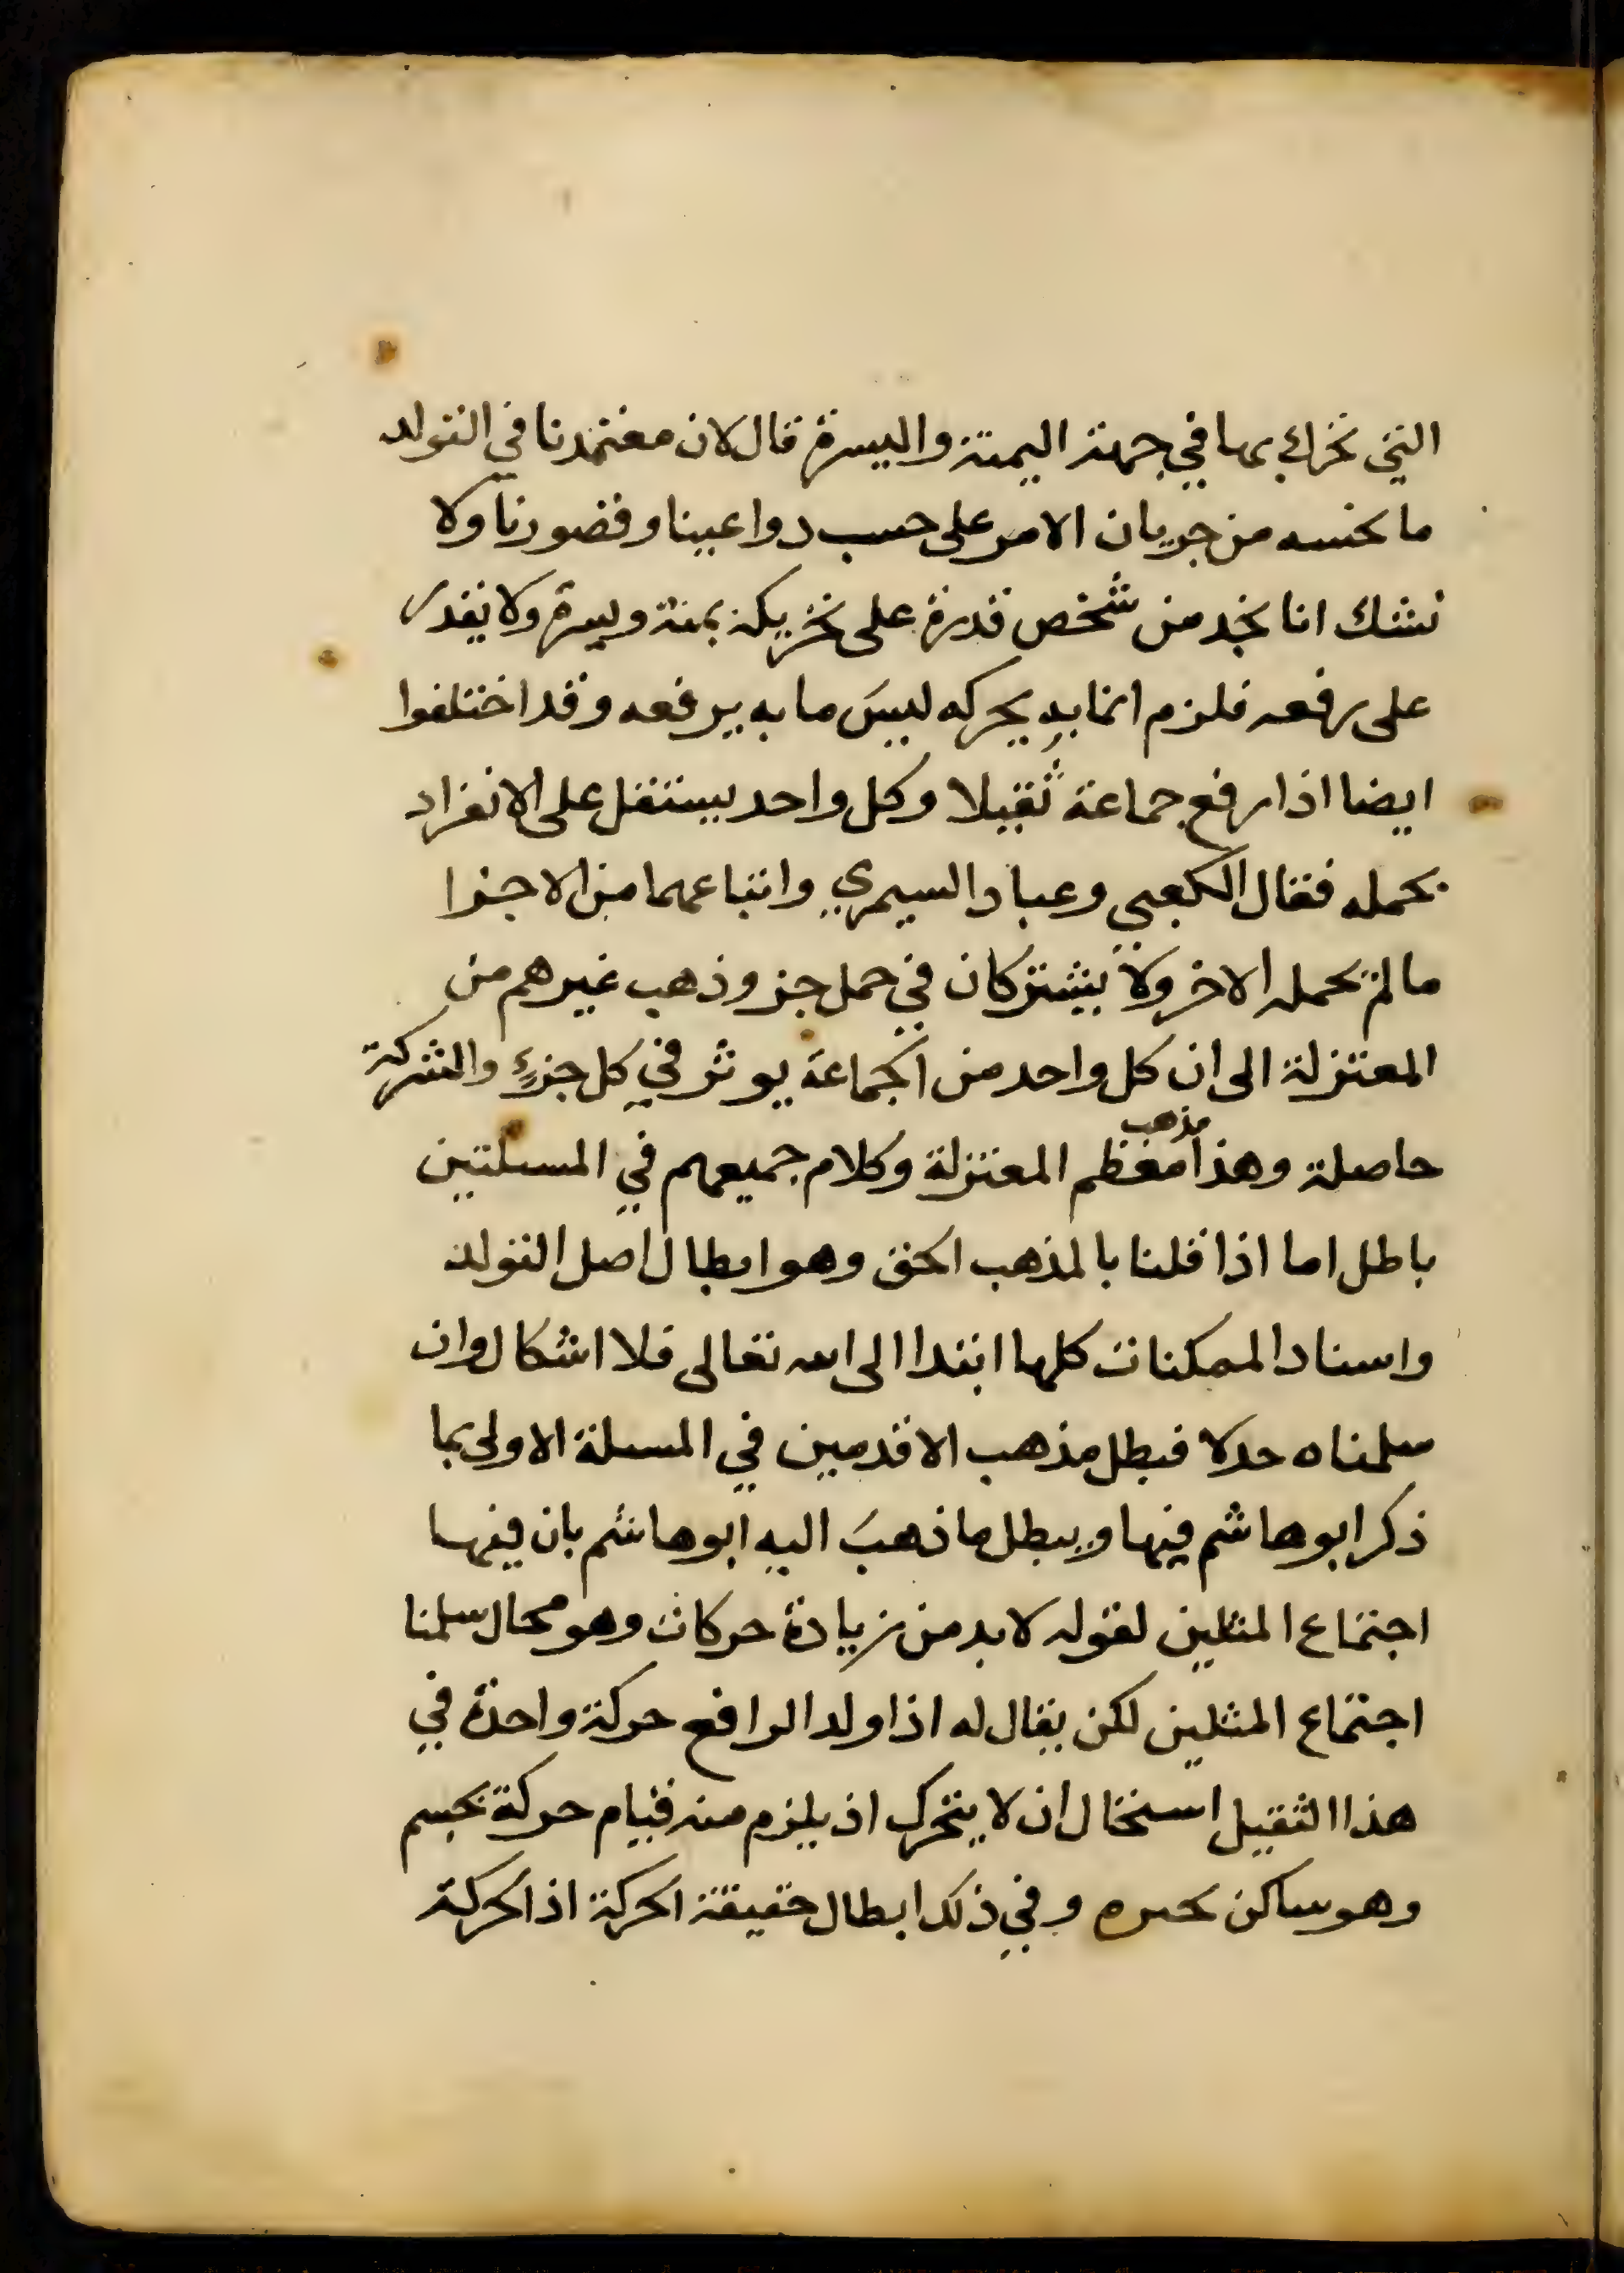 التي تحرك بها في جهة اليمنة واليسرة قال لان معتمدنا في التولد
ما نحسه من جريان الامر على حسب دواعينا وقصودنا ولا
نشك انا نجد من شخص قدرة على تحريكه يمنة ويسرة ولا يقدر
على رفعه فلزم انما به يحركه ليس ما به يرفعه وقد اختلفوا
ايضا اذا رفع جماعة ثقيلا وكل واحد يستقل على الانفراد
بحمله فقال الكعبي وعباد السيمري واتباعهما من الاجزا
ما لم يحمله الاخر ولا يشتركان في حمل جز وذهب غيرهم من
المعتزلة الى ان كل واحد من الجماعة يوثر في كل جزء والشركة
حاصلة وهذا مذهب معظم المعتزلة وكلام جميعهم في المسلتين
باطل اما اذا قلنا بالمذهب الحق وهو ابطال اصل التولد
واسناد الممكنات كلها ابتدا الى الله تعالى فلا اشكال وان
سلمناه جدلا فبطل مذهب الاقدمين في المسلة الاولى بما
ذكر ابو هاشم فيها ويبطل ما ذهب اليه ابو هاشم بان فيها
اجتماع المثلين لقوله لا بد من زيادة حركات وهو محال سلمنا
اجتماع المثلين لكن يقال له اذا ولد الرافع حركة واحدة في
هذا الثقيل استحال ان لا يتحرك اذ يلزم منه قيام حركة بجسم
وهو ساكن وفي ذلك ابطال حقيقة الحركة اذ الحركة